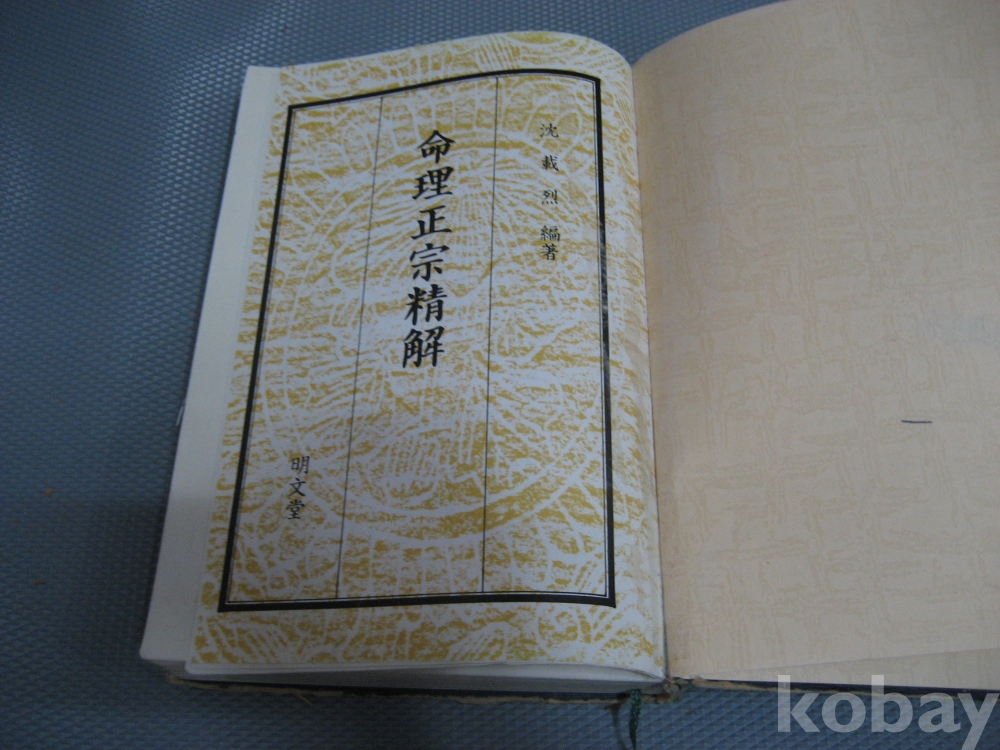 沈載烈 編著
命理正宗精解
明文堂
kobay